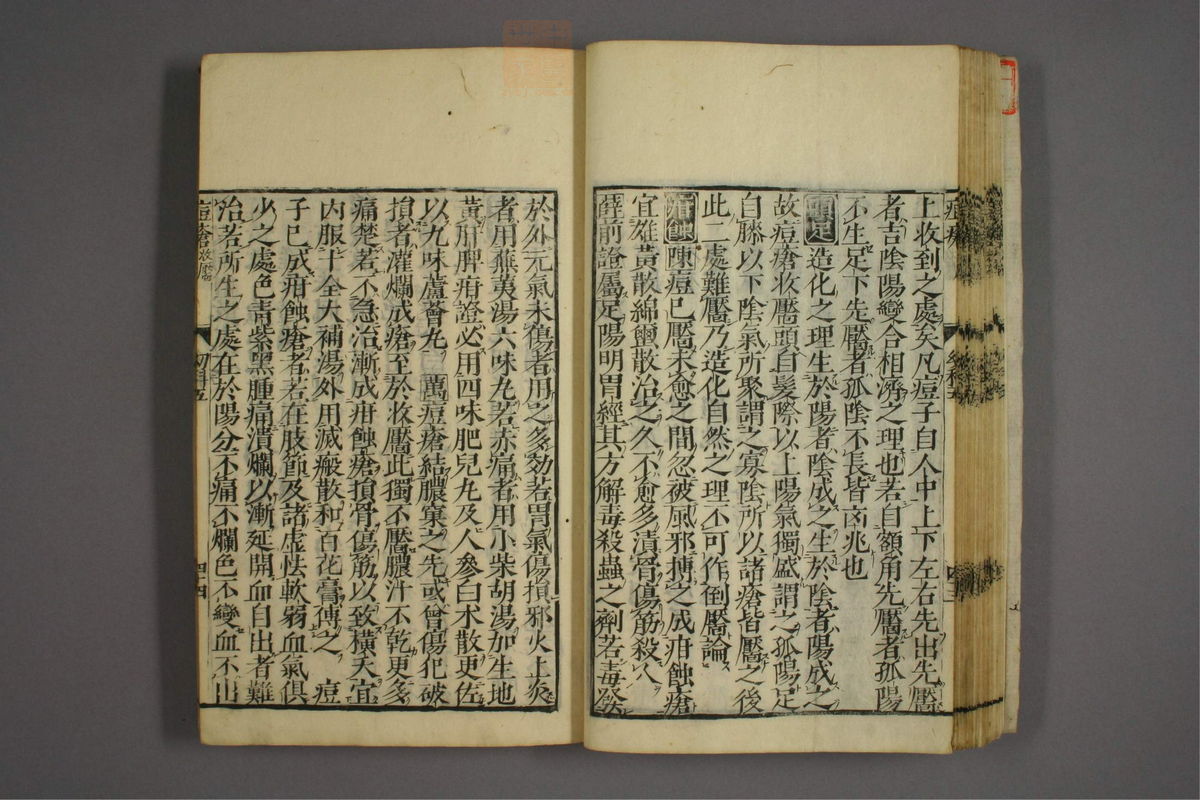 上收到之處矣凡痘子自人中上下左右先出先靨
者吉陰陽變合相濟之理也若自額角先靨者孤陽
不生足下先靨者孤陰不長皆凶兆也
頭足 造化之理生於陽者陰成之生於陰者陽成之
故痘瘡收靨頭自髮際以上陽氣獨盛謂之孤陽足
自膝以下陰氣所聚謂之寡陰所以諸瘡皆靨之後
此二處難靨乃造化自然之理不可作倒靨論
疳蝕 陳痘已靨未愈之間忽被風邪搏之成疳蝕瘡
宜雄黃散綿蠒散治之久不愈多潰骨傷筋殺人
薛前證屬足陽明胃經其方解毒殺蟲之劑若毒發
於外元氣未傷者用之多効若胃氣傷損邪火上炎
者用蕪荑湯六味丸若赤痛者用小柴胡湯加生地
黃肝脾疳證必用四味肥兒丸及人參白朮散更佐
以九味蘆薈丸 萬痘瘡結膿窠之先或曾傷犯破
損者灌爛成瘡至於收靨此獨不靨膿汁不乾更多
痛楚若不急治漸成疳蝕瘡損骨傷筋以致橫夭宜
內服十全大補湯外用滅瘢散和百花膏傅之 痘
子已成疳蝕瘡者若在肢節及諸虛怯軟弱血氣俱
少之處色青紫黑腫痛潰爛以漸延開血自出者難
治若所生之處在於陽分不痛不爛色不變血不出
痘瘡收靨
幼科五
四十四